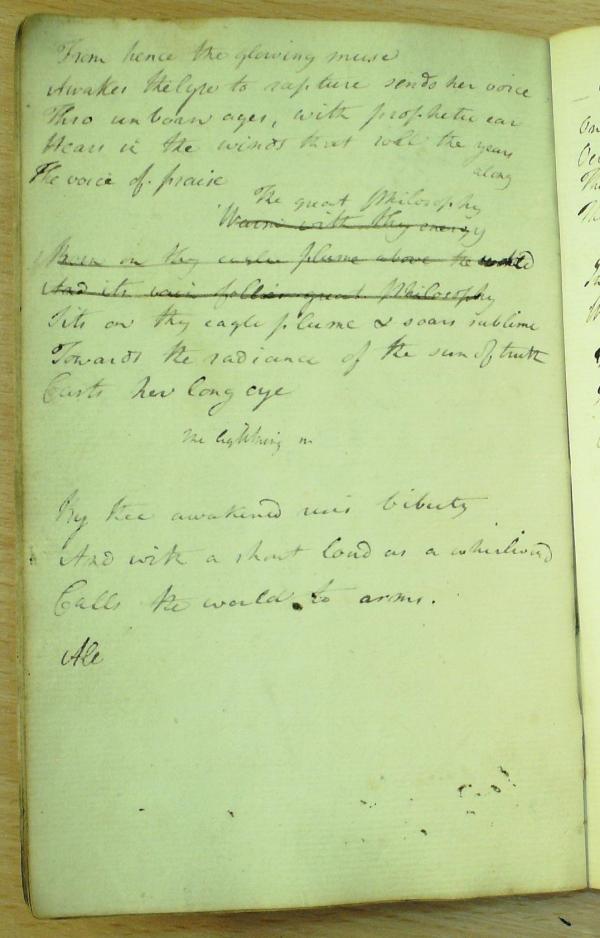 From hence the glowing muse
Awakes the lyre to rapture sends her voice
Thro unborn ages, with prophetic ear
Hears in the winds that roll the years
along
The voice of praise
The great Philosophy
Warm with thy energy
Born on thy eagle plume above the world
And its vain follies great Philosophy
Sits on thy eagle plume & soars sublime
Towards the radiance of the sun of truth
Casts her long eye
The lightning
By thee awakened rises Liberty
And with a shout loud as a whirlwind
Calls the world to arms.